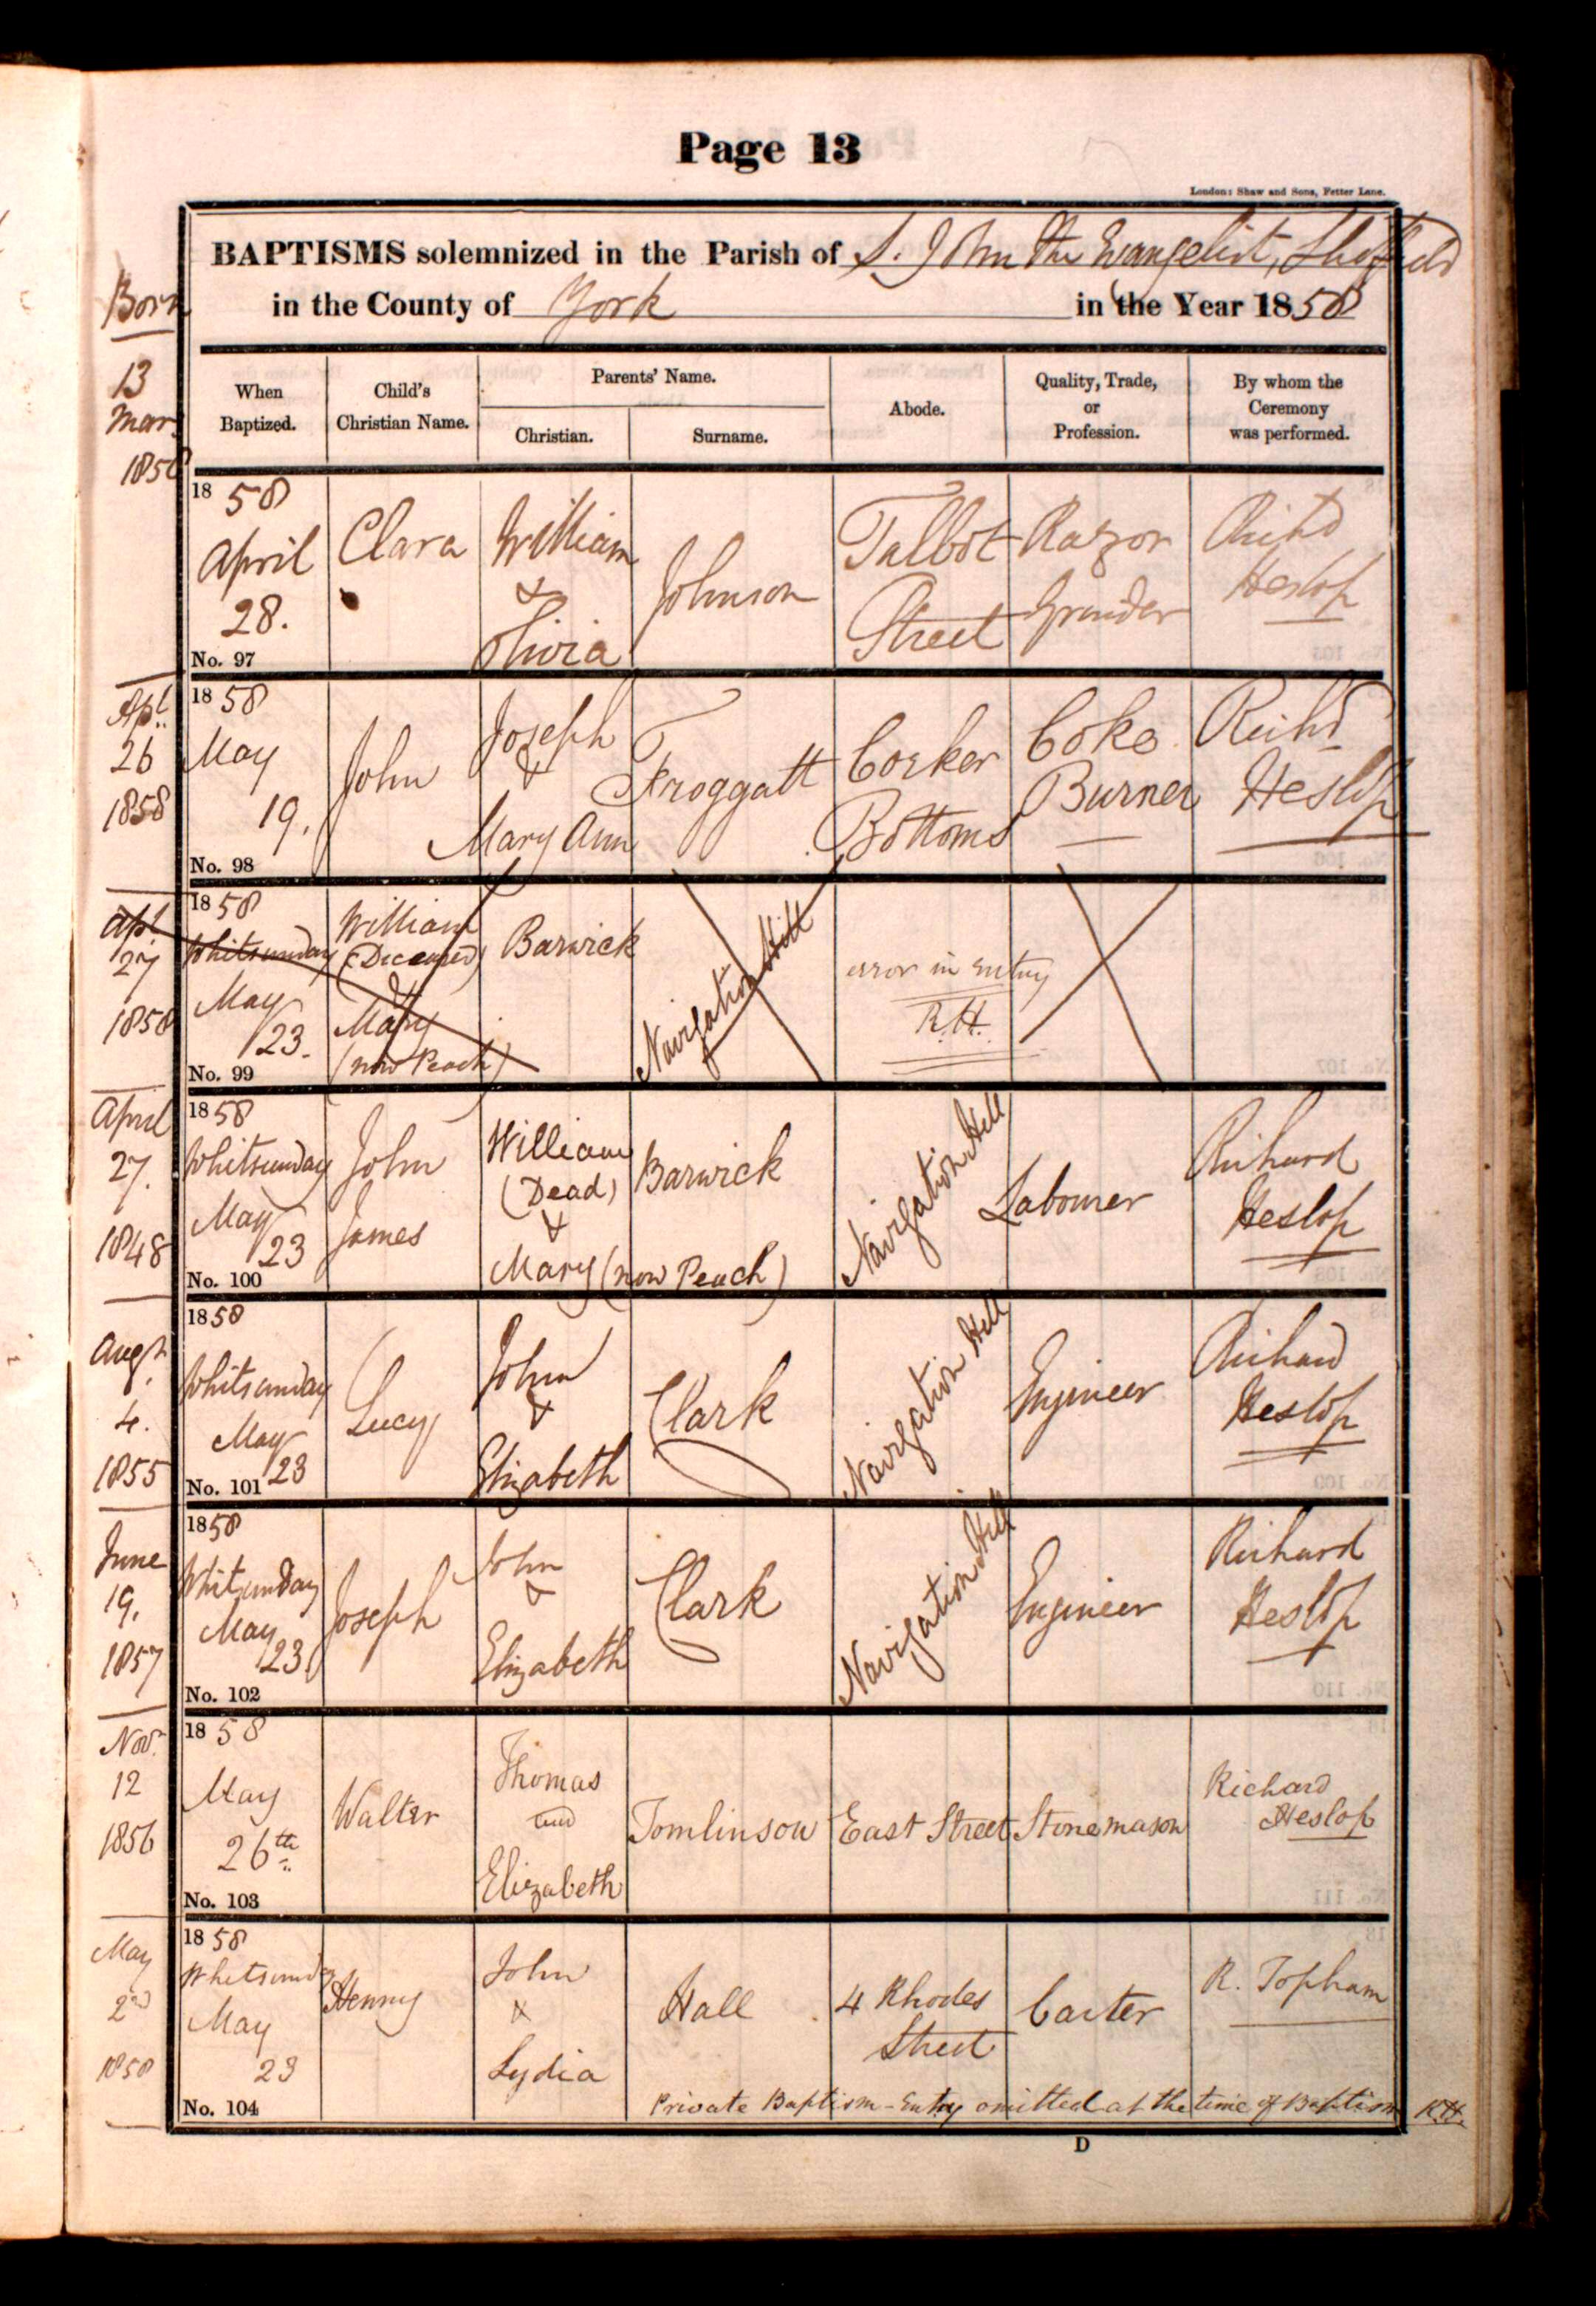 Page 13
London: Shaw and Sons, Fetter Lane.
BAPTISMS solemnized in the Parish of S. John the Evangelist, Sheffield
in the County of York in the Year 1858
Born
When Baptized.
Child's Christian Name.
Parents' Name.
Christian.
Surname.
Abode.
Quality, Trade, or Profession.
By whom the Ceremony was performed.
13
Mar
1858
1858
April
28.
No. 97
Clara
William
&
Olivia
Johnson
Talbot
Street
Razor
Grinder
Richd
Heslop
Apl.
26
1858
1858
May
19.
No. 98
John
Joseph
&
Mary Ann
Froggatt
Corker
Bottoms
Coke
Burner
Richd
Heslop
Apl
27
1858
1858
Whitsunday
May
23.
No. 99
William
(Deceased)
&
Mary
(now Peach)
Barwick
Navigation Hill
error in entry
R.H.
April
27.
1848
1858
Whitsunday
May
23
No. 100
John
James
William
(Dead)
&
Mary (now Peach)
Barwick
Navigation Hill
Labourer
Richard
Heslop
Augt
4.
1855
1858
Whitsunday
May
23
No. 101
Lucy
John
&
Elizabeth
Clark
Navigation Hill
Engineer
Richard
Heslop
June
19.
1857
1858
Whitsunday
May
23.
No. 102
Joseph
John
&
Elizabeth
Clark
Navigation Hill
Engineer
Richard
Heslop
Nov.
12
1856
1858
May
26th
No. 103
Walter
Thomas
and
Elizabeth
Tomlinson
East Street
Stonemason
Richard
Heslop
May
2nd
1858
1858
Whitsunday
May
23
No. 104
Henry
John
&
Lydia
Hall
4 Rhodes
Street
Carter
R. Topham
Private Baptism - Entry omitted at the time of Baptism R.H.
D